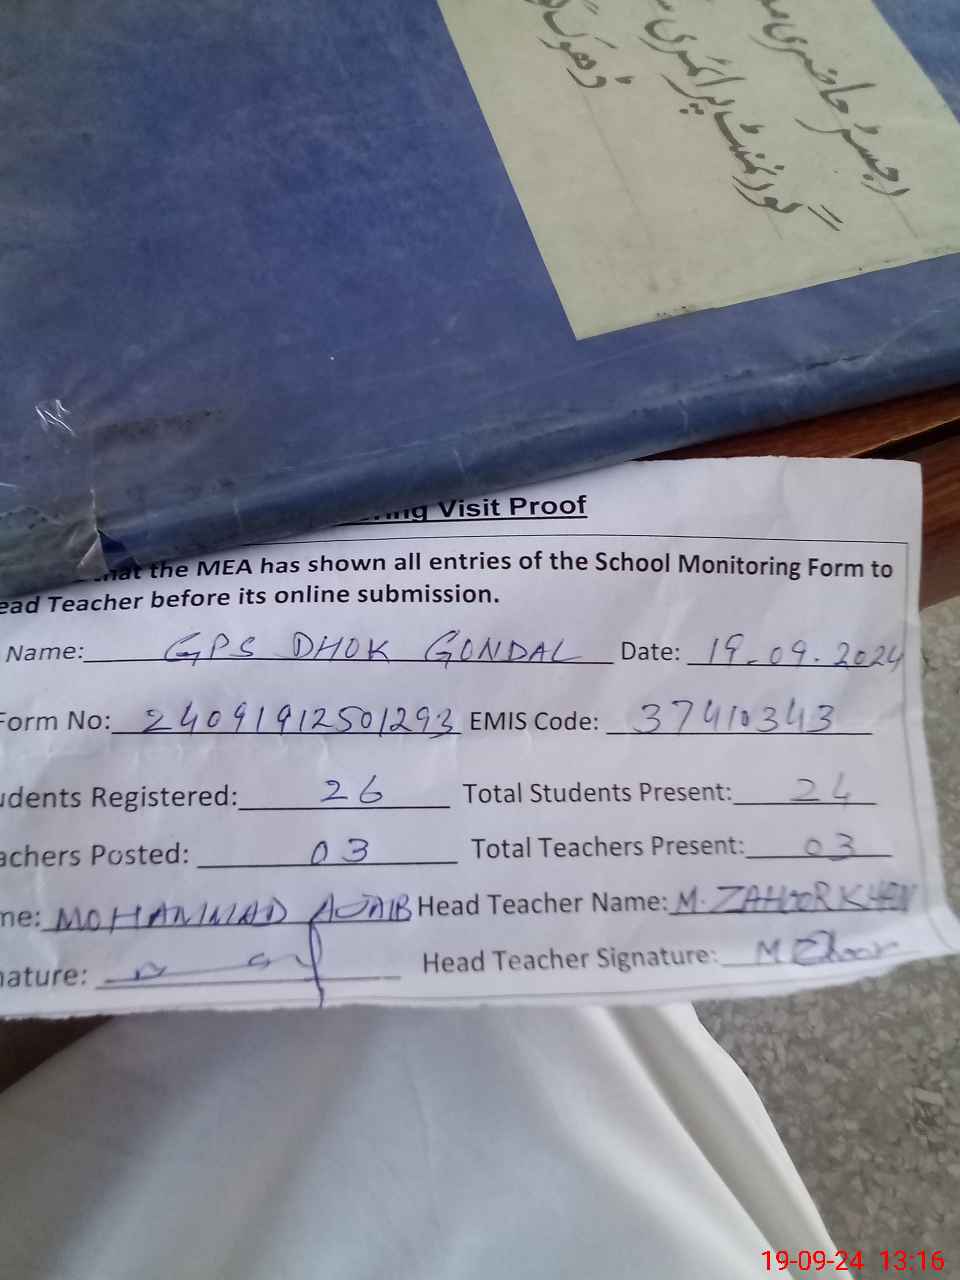 رجسٹر حاضری
گورنمنٹ پرائمری
ڈھوک
Visit Proof
that the MEA has shown all entries of the School Monitoring Form to
ead Teacher before its online submission.
Name: GPS DHOK GONDAL Date: 19.09.2024
Form No: 24091912501293 EMIS Code: 37410343
udents Registered: 26 Total Students Present: 24
achers Posted: 03 Total Teachers Present: 03
me: MOHAMMAD AJAIB Head Teacher Name: M. ZAHOOR KHAN
nature: Head Teacher Signature: M Zahoor
19-09-24 13:16